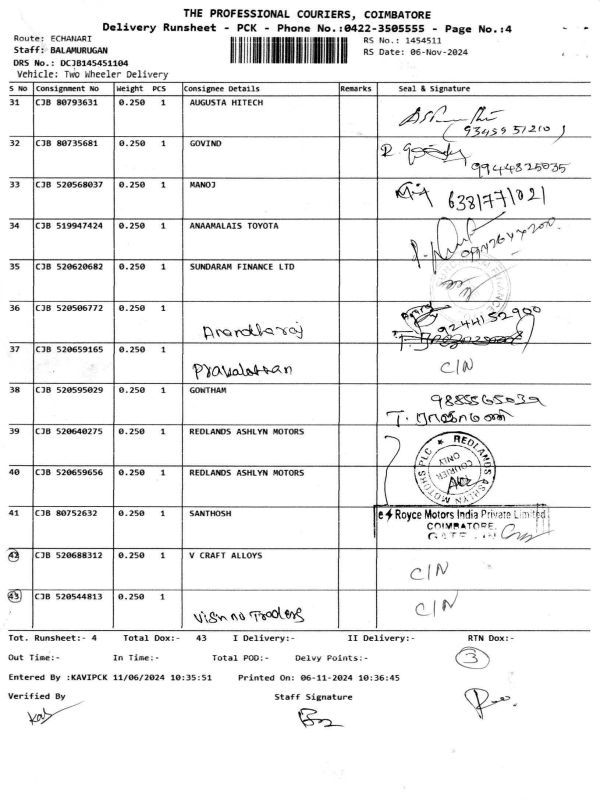 THE PROFESSIONAL COURIERS, COIMBATORE
Delivery Runsheet - PCK - Phone No.:0422-3505555 - Page No.:4
Route: ECHANARI RS No.: 1454511
Staff: BALAMURUGAN RS Date: 06-Nov-2024
DRS No.: DCJB145451104
Vehicle: Two Wheeler Delivery
S No Consignment No Weight PCS Consignee Details Remarks Seal & Signature
31 CJB 80793631 0.250 1 AUGUSTA HITECH
(9345951210)
32 CJB 80735681 0.250 1 GOVIND
9944825035
33 CJB 520568037 0.250 1 MANOJ 6381771021
34 CJB 519947424 0.250 1 ANAAMALAIS TOYOTA
35 CJB 520620682 0.250 1 SUNDARAM FINANCE LTD
36 CJB 520506772 0.250 1 Anandharaj 9244152900
37 CJB 520659165 0.250 1 C/N
38 CJB 520595029 0.250 1 GOWTHAM
39 CJB 520640275 0.250 1 REDLANDS ASHLYN MOTORS
REDLANDS ASHLYN MOTORS PLC
COURIER ONLY
40 CJB 520659656 0.250 1 REDLANDS ASHLYN MOTORS
41 CJB 80752632 0.250 1 SANTHOSH Royce Motors India Private Limited
COIMBATORE.
42 CJB 520688312 0.250 1 V CRAFT ALLOYS C/N
43 CJB 520544813 0.250 1 Vishnu Traders C/N
Tot. Runsheet:- 4 Total Dox:- 43 I Delivery:- II Delivery:- RTN Dox:-
Out Time:- In Time:- Total POD:- Delvy Points:- 3
Entered By :KAVIPCK 11/06/2024 10:35:51 Printed On: 06-11-2024 10:36:45
Verified By Staff Signature